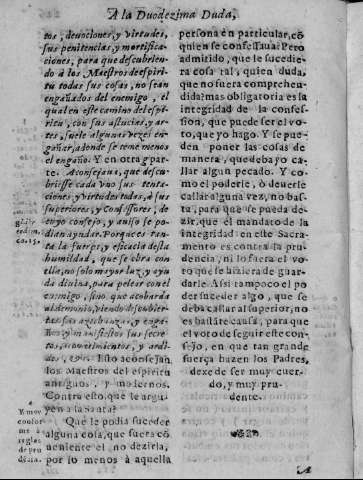 A la Duodezima Duda,
tos, deuociones, y virtudes,
sus penitencias, y mortifica-
ciones, para que descubrien-
do à los Maestros de espiri-
tu todas sus cosas, no sean
engañados del enemigo, el
qual en este camino del espi-
ritu, con sus astucias, y ar-
tes, suele algunas vezes en-
gañar, adonde se teme menos
el engaño. Y en otra par-
te. Aconsejaua, que descu-
briesse cada vno sus tenta-
ciones, y virtudes todas, à sus
superiores, y Confessores, de
cuyo consejo, y auiso se po-
dian ayudar. Porque es tan-
ta la fuerça, y eficacia desta
humildad, que se obra con
ella, no solo mayor luz, y ayu
da diuina, para pelear con el
enemigo, sino que acobarda
al demonio, viendo descubier-
tas sus assechanças, y enga-
ños, y manifiestos sus secre-
tos, mouimientos, y ardi-
des, &c. Esto aconsejan
los Maestros del espiritu
antiguos, y modernos.
Contra esto, que le argu-
yen a la Santa?
Que le podia suceder
alguna cosa, que fuera cō
ueniente el no dezirla,
por lo menos à aquella
cap. 15.
Y muy
confor
me à
reglas
de pru
dēcia.
persona en particular, cō
quien se confessaua? Pero
admitido, que le sucedie-
ra cosa tal, quien duda,
que no fuera comprehen-
dida? mas obligatoria es la
integridad de la confes-
sion, que puede ser el vo-
to, que yo hago. Y se pue-
den poner las cosas de
manera, que deba yo ca-
llar algun pecado. Y co-
mo el poderle, ò deuerle
callar alguna vez, no bas-
ta, para que se pueda de-
zir, que el mandato de la
integridad en este Sacra-
mento es contra la pru-
dencia, ni lo fuera el vo-
to que se hiziera de guar-
darle. Assi tampoco el po
der suceder algo, que se
deba callar al superior, no
es bastāte causa, para que
el voto de seguir este con-
sejo, en que tan grande
fuerça hazen los Padres,
dexe de ser muy cuer-
do, y muy pru-
dente.
A